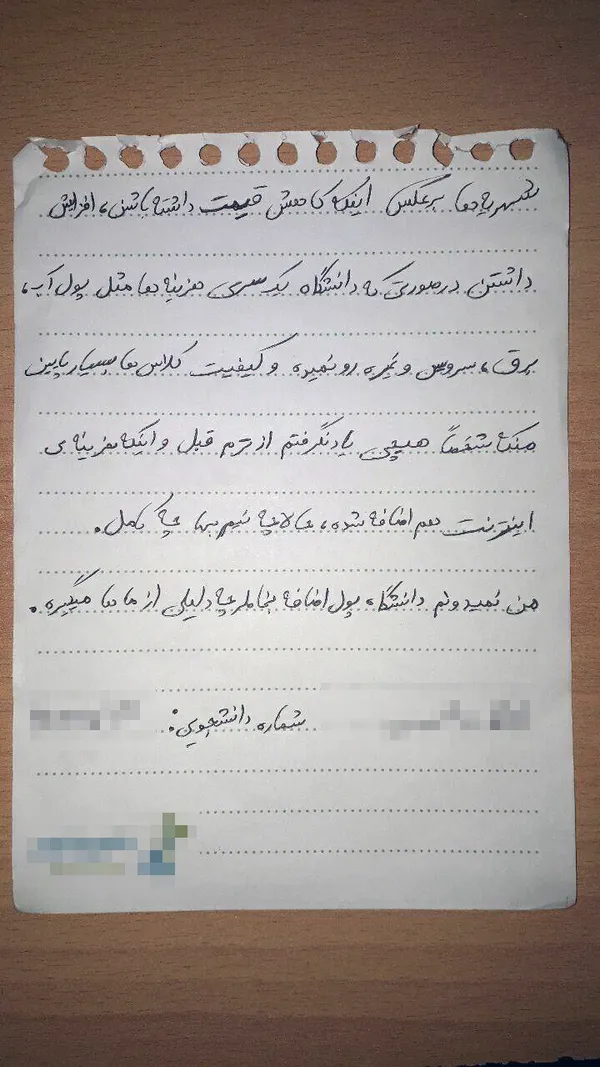 شهریه‌ها برعکس اینکه کاهش قیمت داشته باشن، افزایش
داشتن درصورتی که دانشگاه یک سری هزینه‌ها مثل پول آب،
برق، سرویس و غیره رو نمیده و کیفیت کلاس‌ها بسیار پایین
منکه شخصاً هیچی یاد نگرفتم از ترم قبل و اینکه هزینه‌ی
اینترنت هم اضافه شده، حالا چه نیم بها چه کامل.
من نمیدونم دانشگاه، پول اضافه بخاطر چه دلیلی از ماها میگیره.
شماره دانشجویی: